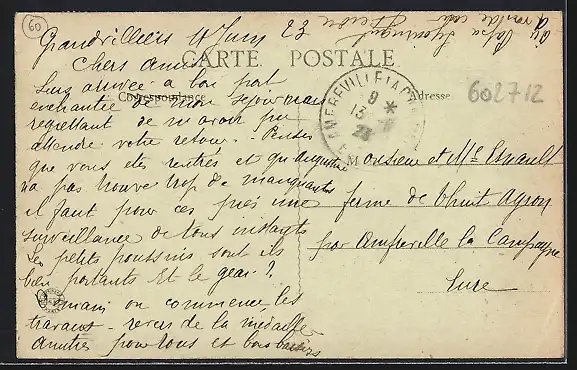 60
Grandvilliers 11 Juin 23
CARTE POSTALE
Chers amis
Suis arrivée a bon port
Correspondance
Adresse
602712
enchantée de mon séjour mais
regrettant de n'avoir pu
attendre votre retour. - Pensez
que vous etes rentrés et qu'Augustine
n'a pas trouvé trop de manquants
il faut pour ces près une
surveillance de tous instants
Les petits poussins sont ils
bien portants Et le geai ?
Demain on commence les
travaux - revers de la médaille
Amitiés pour tous et bons baisers
AMFREVILLE LA CAMP
9
13
23
Monsieur et Me Esnault
ferme de
par Amfreville la Campagne
Eure